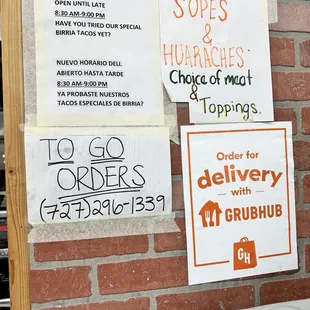 OPEN UNTIL LATE
8:30 AM-9:00 PM
HAVE YOU TRIED OUR SPECIAL
BIRRIA TACOS YET?
NUEVO HORARIO DELI.
ABIERTO HASTA TARDE
8:30 AM-9:00 PM
YA PROBASTE NUESTROS
TACOS ESPECIALES DE BIRRIA?
SOPES
&
HUARACHES
Choice of meat
&
Toppings.
TO GO
ORDERS
(727)296-1339
Order for
delivery
with
GRUBHUB
GH